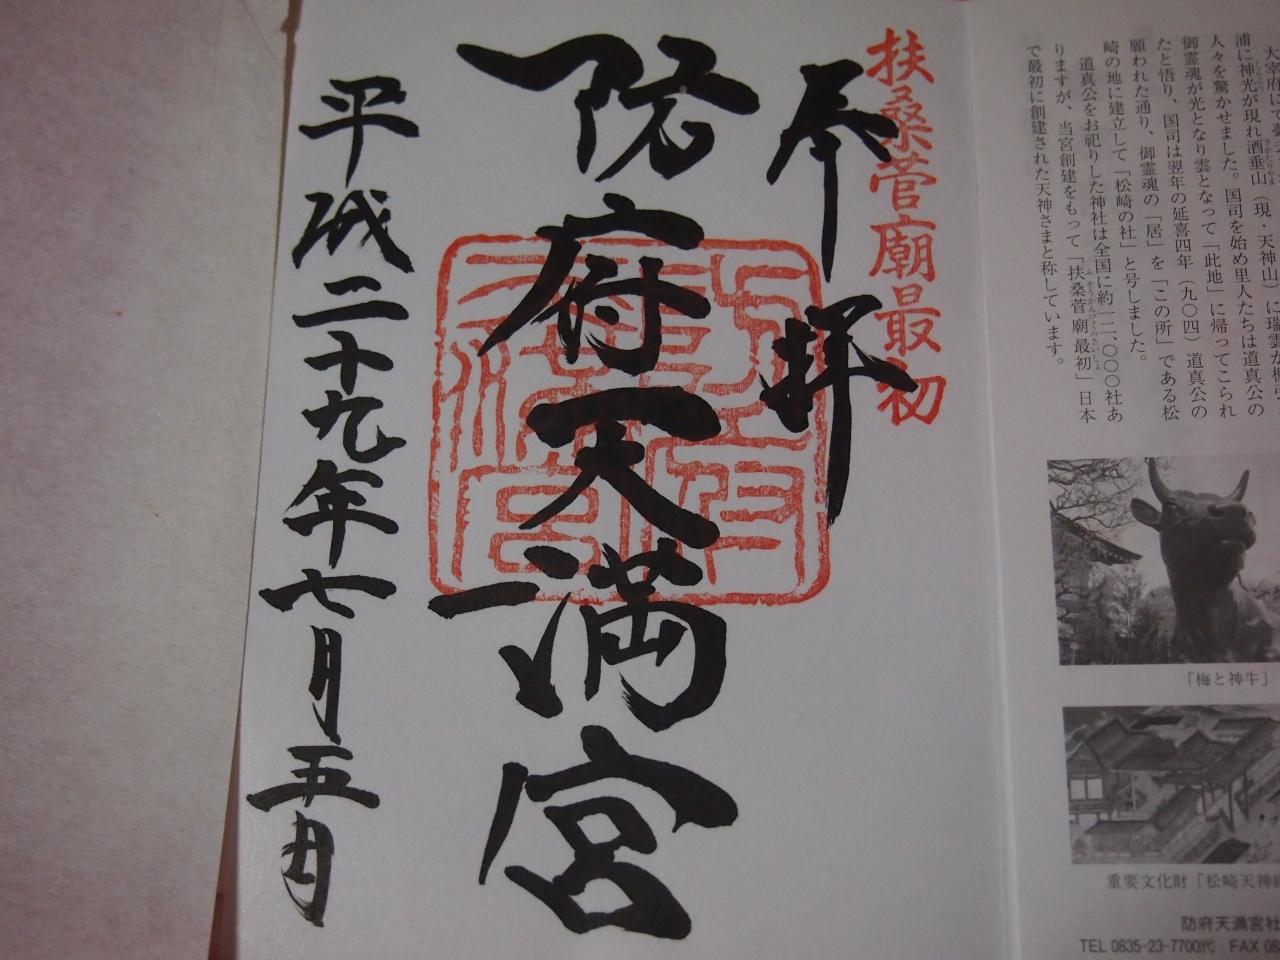 人々を驚かせました。国司を始め里人たちは道真公の
御霊魂が光となり雲となって「此地」に帰ってこられ
たと悟り、国司は翌年の延喜四年（九〇四）道真公の
願われた通り、御霊魂の「居」を「この所」である松
崎の地に建立して「松崎の社」と号しました。
道真公をお祀りした神社は全国に約一二、〇〇〇社あ
りますが、当宮創建をもって「扶桑菅廟最初」日本
で最初に創建された天神さまと称しています。
「梅と神牛」
重要文化財「松崎天神
防府天満宮社
TEL 0835-23-7700代 FAX
扶桑菅廟最初
奉拝
防府天満宮
平成二十九年七月五日